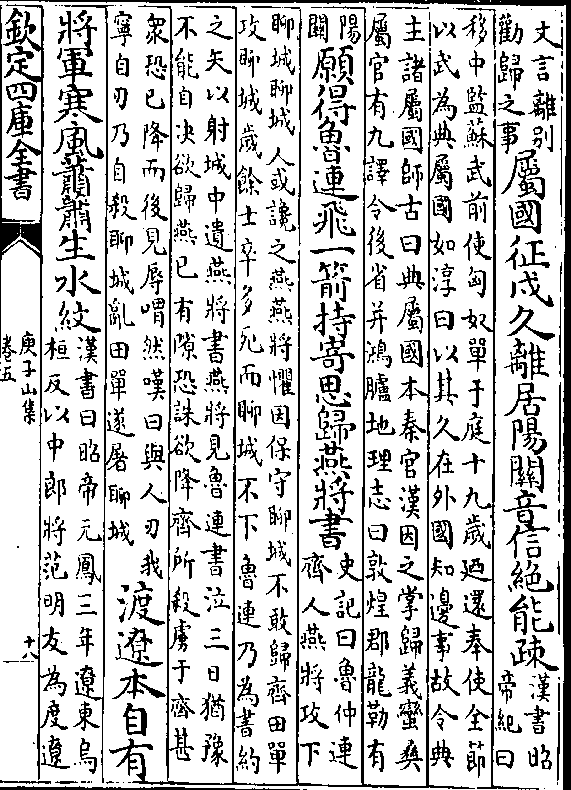 文言離別
勸歸之事
屬國征戍久離居陽關音信絶能疎
漢書昭
帝紀曰
栘中監蘇武前使匈奴單于庭十九歲廼還奉使全節
以武為典屬國如淳曰以其久在外國知邊事故令典
主諸屬國師古曰典屬國本秦官漢因之掌歸義蠻彜
屬官有九譯令後省并鴻臚地理志曰敦煌郡龍勒有
陽
關
願得魯連飛一箭持寄思歸燕將書
史記曰魯仲連
齊人燕將攻下
聊城聊城人或讒之燕燕將懼因保守聊城不敢歸齊田單
攻聊城歲餘士卒多死而聊城不下魯連乃為書約
之矢以射城中遺燕將書燕將見魯連書泣三日猶豫
不能自决欲歸燕已有隙恐誅欲降齊所殺虜于齊甚
衆恐已降而後見辱喟然嘆曰與人刃我
寧自刃乃自殺聊城亂田單遂屠聊城
渡遼本自有
將軍寒風蕭蕭生水紋
漢書曰昭帝元鳳三年遼東烏
桓反以中郎將范明友為度遼
欽定四庫全書
庾子山集
卷五
十八